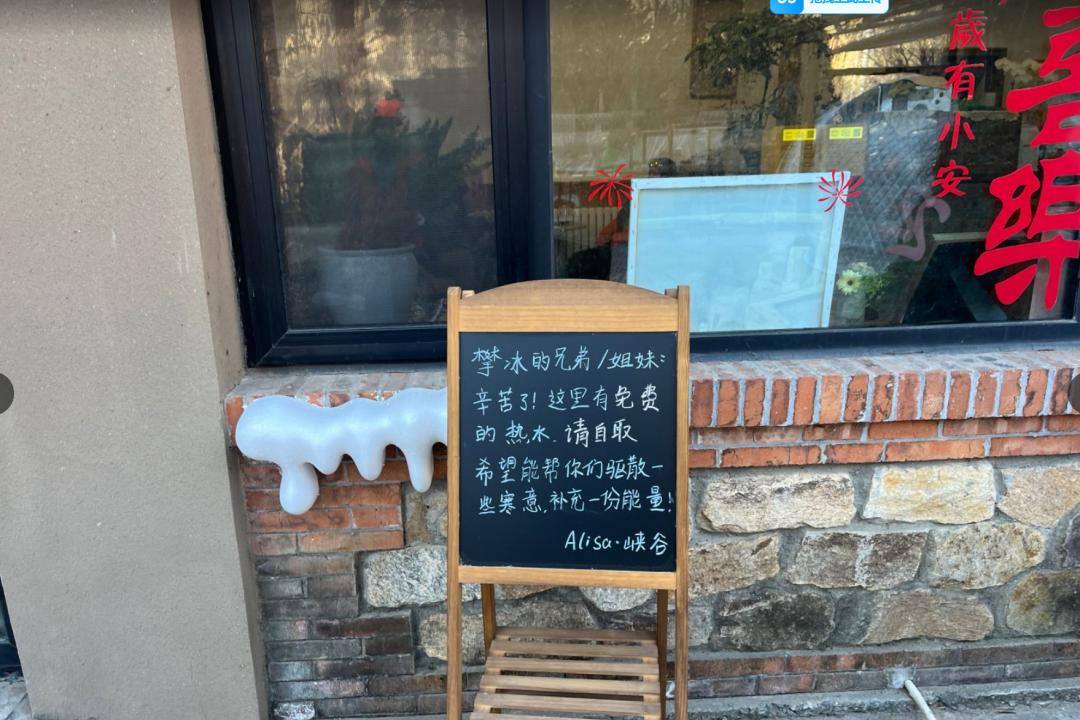 攀冰的兄弟/姐妹:
辛苦了!这里有免费
的热水.请自取
希望能帮你们驱散一
些寒意,补充一份能量!
Alisa·峡谷
歲有小安